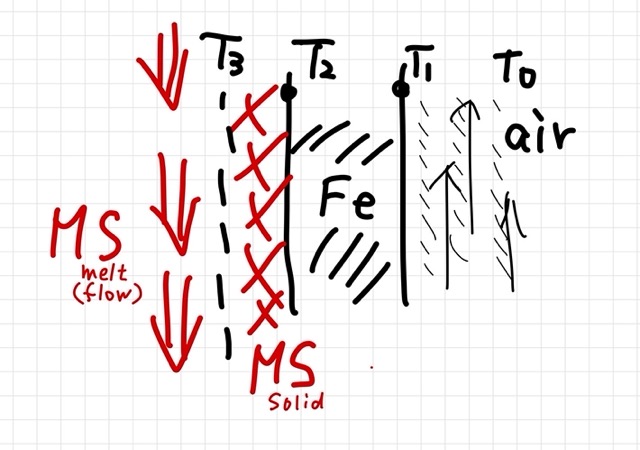 T3 T2 T1 T0
air
Fe
MS
melt
(flow)
MS
Solid